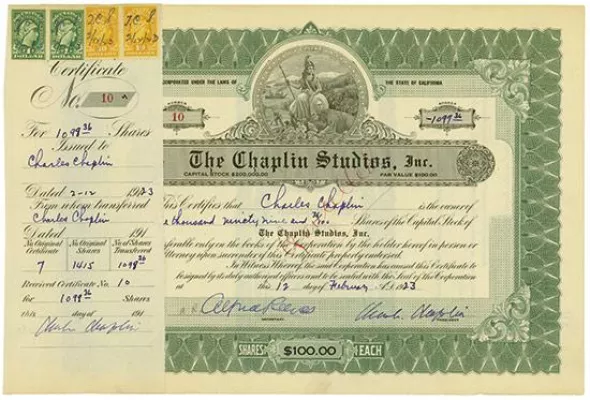 Certificate
No. 10
For 1099 36/ Shares
Issued to
Charles Chaplin
Dated 2-12 1923
From whom transferred
Charles Chaplin
Dated 191
No. Original Certificate No. Original Shares No. of Shares Transferred
7 1415 1098 36/
Received Certificate No. 10
for 1099 36/ Shares
this day of 191
Charles Chaplin
INCORPORATED UNDER THE LAWS OF THE STATE OF CALIFORNIA
NUMBER
10
SHARES
-1099 36/
The Chaplin Studios, Inc.
CAPITAL STOCK $200,000.00 PAR VALUE $100.00
This Certifies that Charles Chaplin is the owner of
thousand ninety nine and 36/100 Shares of the Capital Stock of
The Chaplin Studios, Inc.
transferable only on the books of the Corporation by the holder hereof in person or
Attorney upon surrender of this Certificate properly endorsed.
In Witness Whereof, the said Corporation has caused this Certificate to
be signed by its duly authorized officers and to be sealed with the Seal of the Corporation
this 12 day of February A.D. 1923
Alfred Reeves Charles Chaplin
SECRETARY PRESIDENT
SHARES $100.00 EACH